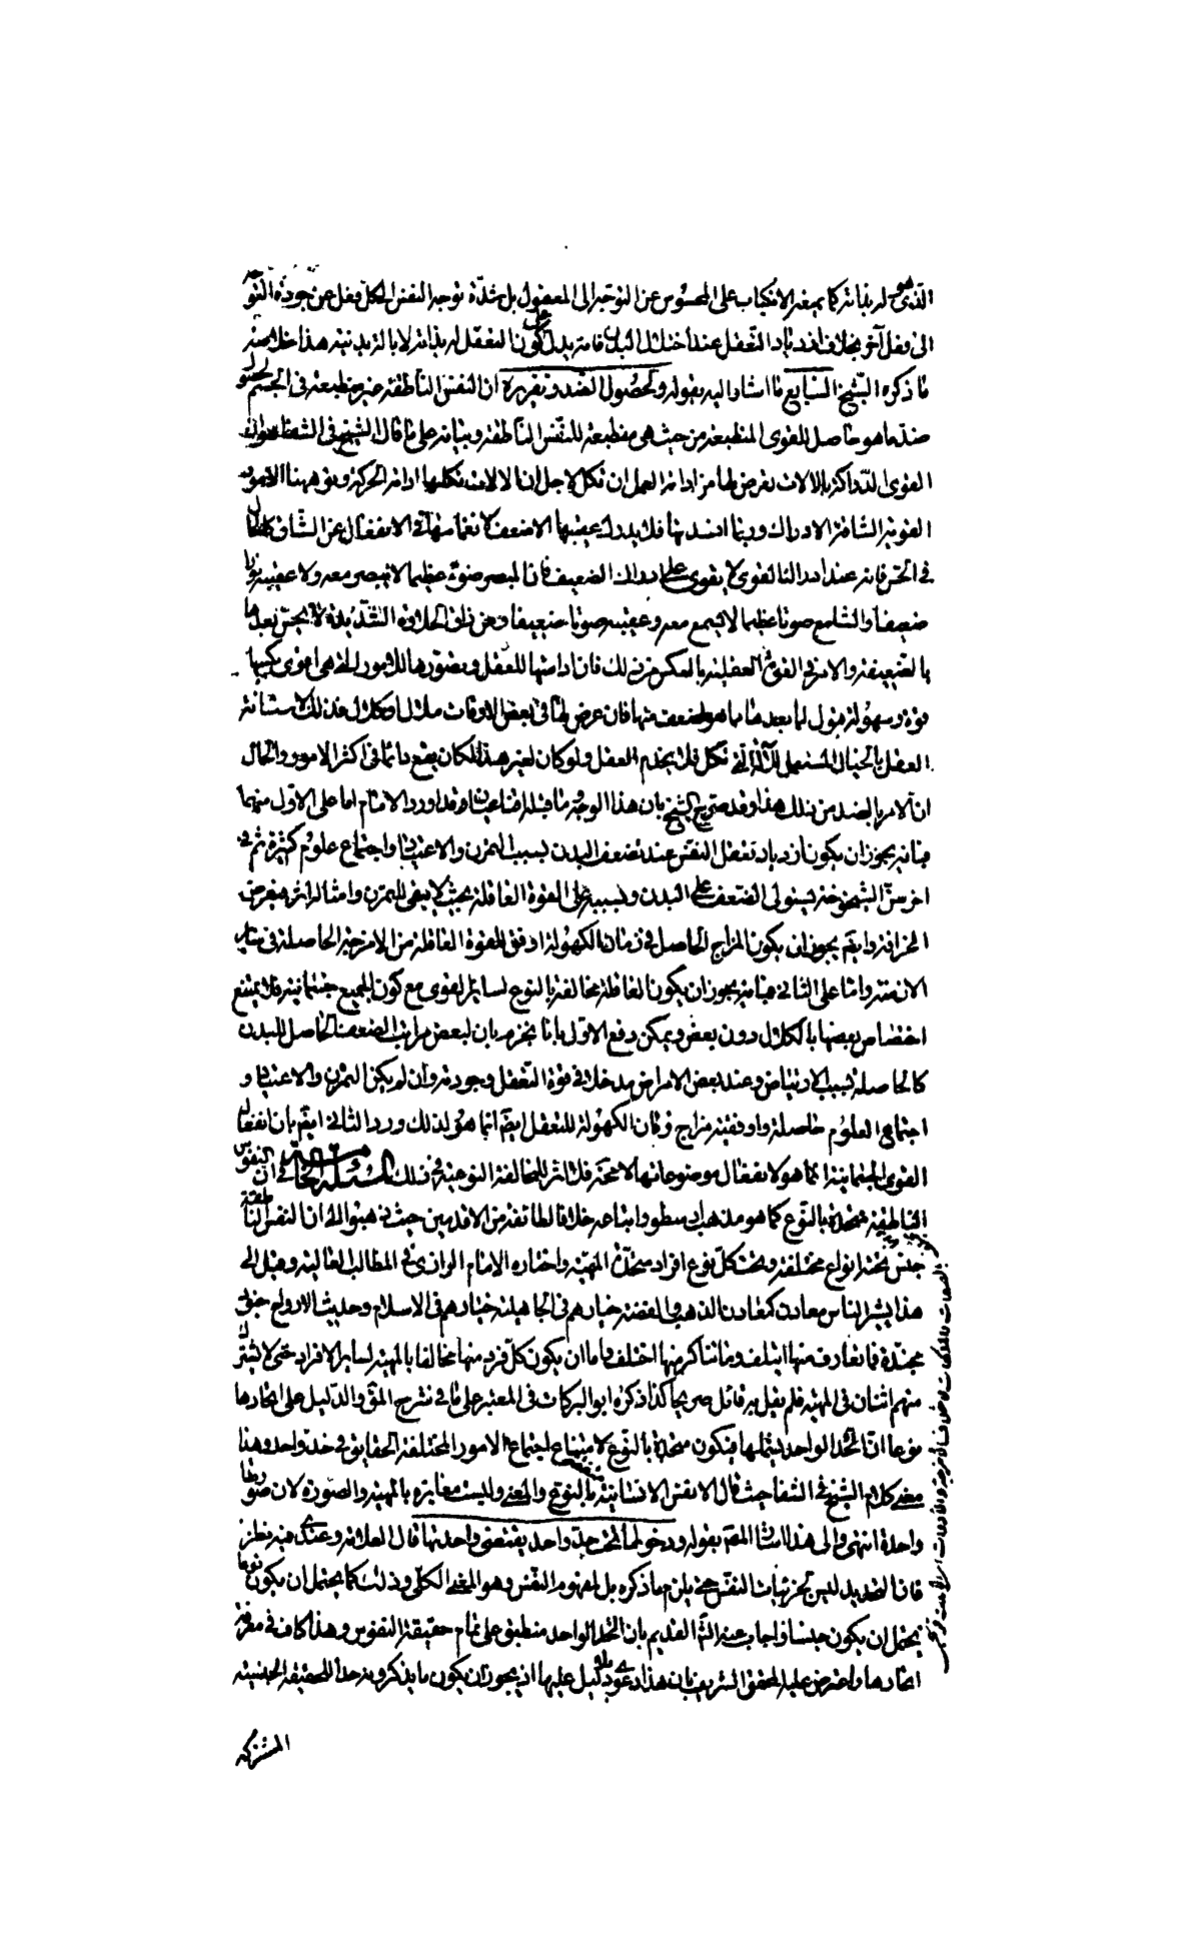 الذى هو له بذاته كما يمنعه الانكباب على المحسوس عن التوجه الى المعقول بل شدة توجه النفس الى كل فعل عن جودة التوجه
الى فعل آخر بخلاف ازدياد التعقل عند اختلال البدن فانه يدل على كون التعقل له بذاته لا بآلة بدنية هذا خلاصة
ما ذكره الشيخ السابع ما اشار اليه بقوله ولحصول الضد وتقريره ان النفس الناطقة غير منطبعة فى الجسم لحصول
ضد ما هو حاصل للقوى المنطبعة من حيث هى منطبعة للنفس الناطقة وبيانه على ما قال الشيخ فى الشفا هو ان
القوى الدراكة بالالات يعرض لها من ادامة العمل ان تكل لاجل ان الالات تكلها ادامة الحركة وتوهنها الامور
القوية الشاقة الادراك وربما افسدتها فلا يدرك عقيبها الاضعف لانغماسها فى الانفعال عن الشاق كالحال
فى الحس فانه عند ادراك القوى لا يقوى على ادراك الضعيف فان المبصر ضوءً عظيما لا يبصر معه ولا عقيبه نورا
ضعيفا والسامع صوتا عظيما لا يسمع معه وعقيبه صوتا ضعيفا ومن ذاق الحلاوة الشديدة لا يحس بعدها
بالضعيفة والامر فى القوى العقلية بالعكس من ذلك فان ادامتها للعقل وتصورها للامور التى هى اقوى يكسبها
قوة وسهولة قبول لما بعدها مما هو اضعف منها فان عرض لها فى بعض الاوقات ملال او كلال فذلك لاستعانة
العقل بالخيال المستعمل للآلة التى تكل فلا يخدم العقل ولو كان لغير هذا لكان يقع دائما فى اكثر الامور والحال
ان الامر بالضد من ذلك هذا وقد صرح الشيخ بان هذا الوجه وما قبله اقناعيان وقد اورد الامام اما على الاول منهما
فبانه يجوز ان يكون ازدياد تعقل النفس عند ضعف البدن بسبب التمرن والاعتياد واجتماع علوم كثيرة ثم فى
اخر سن الشيخوخة يستولى الضعف على البدن وبسببه على القوة العاقلة بحيث لا يبقى للتمرن وامثاله اثر فيعرض
الخرافة وايضا يجوز ان يكون المزاج الحاصل فى زمان الكهولة اوفق للقوة العاقلة من الامزجة الحاصلة فى سائر
الازمنة واما على الثانى فبانه يجوز ان يكون العاقلة مخالفة بالنوع لسائر القوى مع كون الجميع جسمانية فلا يمتنع
اختصاص بعضها بالكلال دون بعض ويمكن دفع الاول بانا نجزم بان لبعض مراتب الضعف الحاصل للبدن
كالحاصلة بسبب الارتياض وعند بعض الامراض مدخلا فى قوة التعقل وجودته وان لم يكن التمرن والاعتياد و
اجتماع العلوم حاصلة واوفقية مزاج زمان الكهولة للتعقل ايضا انما هو لذلك ورد الثانى ايضا بان انفعال
القوى الجسمانية انما هو لانفعال موضوعاتها لا محة فلا اثر للمخالفة النوعية فى ذلك المسئلة الخامسة فى ان النفوس
الناطقة متحدة بالنوع كما هو مذهب ارسطو واتباعه خلافا لطائفة من الاقدمين حيث ذهبوا الى ان النفس الناطقة
جنس تحته انواع مختلفة وتحت كل نوع افراد متحدة المهية واختاره الامام الرازى فى المطالب العالية وقيل الى
هذا يشير الناس معادن كمعادن الذهب والفضة خيارهم فى الجاهلية خيارهم فى الاسلام وحديث الارواح جنود
مجندة فما تعارف منها ايتلف وما تناكر منها اختلف واما ان يكون كل فرد منها مخالفا بالمهية لسائر الافراد حتى لا يشترك
منهم اثنان فى المهية فلم يقل به قائل صريحا كذا ذكره ابو البركات فى المعتبر على ما فى شرح المق والدليل على اتحادها
نوعا ان الحد الواحد يشملها فيكون متحدة بالنوع لامتناع اجتماع الامور المختلفة الحقايق فى حد واحد وهذا
معنى كلام الشيخ فى الشفا حيث قال الانفس الانسانية متفقة بالنوع والمعنى وليست مغايرة بالمهية والصورة لان صورتها
واحدة انتهى والى هذا اشار المصم بقوله ودخولها تحت حد واحد يقتضى وحدتها قال العلامة وعندى فيه نظر
فان التحديد ليس لجزئيات النفس حتى يلزم ما ذكره بل لمفهوم النفس وهو المعنى الكلى وذلك كما يحتمل ان يكون نوعا
يحتمل ان يكون جنسا واجاب عنه الشم القديم بان الحد الواحد منطبق على تمام حقيقة النفوس وهذا كاف فى معرفة
اتحادها واعترض عليه المحقق الشريف بان هذا دعوى بلا دليل عليها اذ يجوز ان يكون ما يذكرونه حدا للحقيقة الجنسية
المشتركة